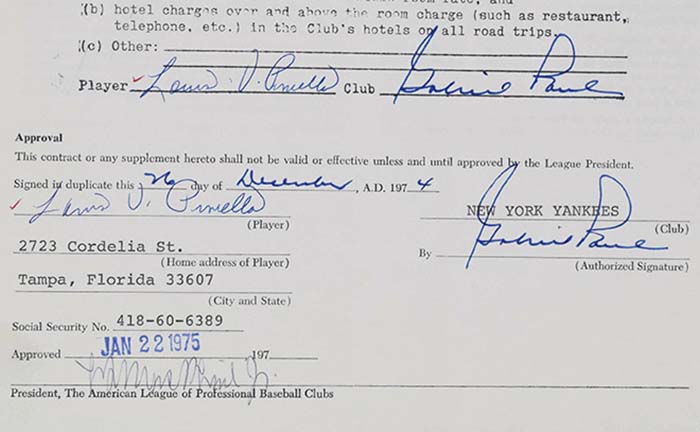 (b) hotel charges over and above the room charge (such as restaurant,
telephone, etc.) in the Club's hotels on all road trips.
(c) Other:
Player Louis V. Piniella Club Gabriel Paul
Approval
This contract or any supplement hereto shall not be valid or effective unless and until approved by the League President.
Signed in duplicate this 26 day of December, A.D. 1974
Louis V. Piniella
(Player)
NEW YORK YANKEES
(Club)
2723 Cordelia St.
(Home address of Player)
By Gabriel Paul
(Authorized Signature)
Tampa, Florida 33607
(City and State)
Social Security No. 418-60-6389
Approved JAN 22 1975 197
President, The American League of Professional Baseball Clubs